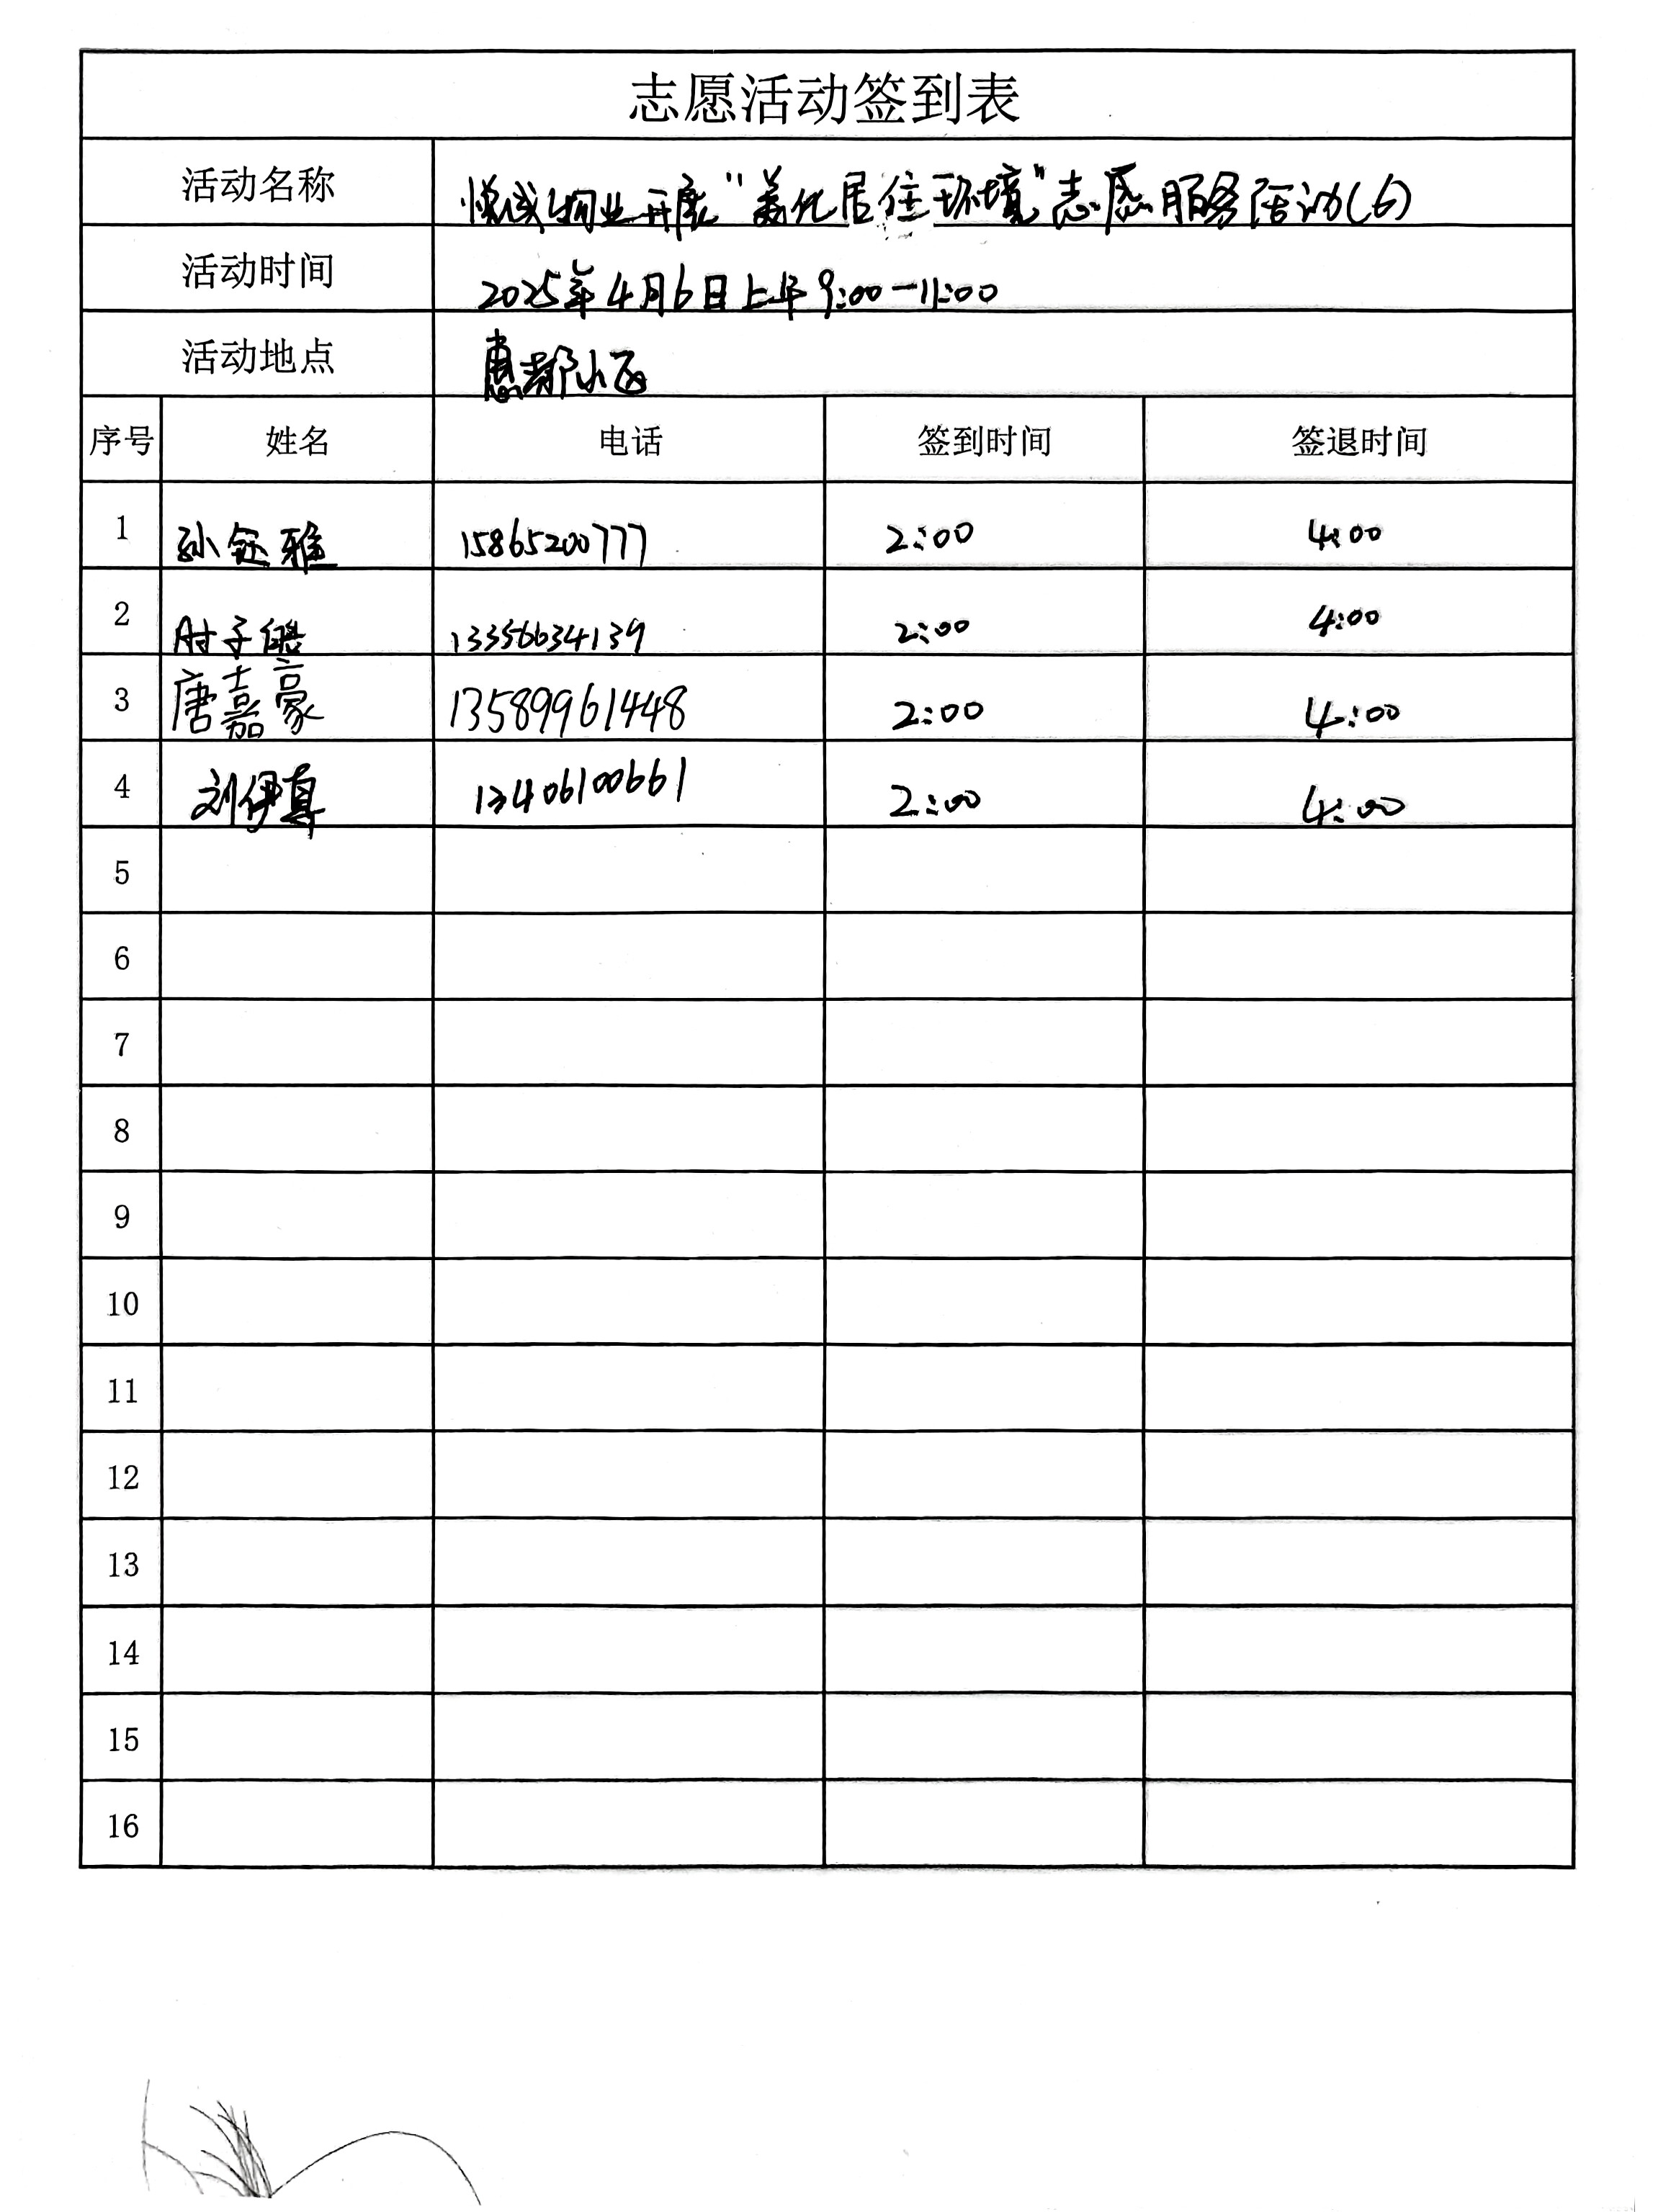 志愿活动签到表
活动名称 悦诚物业开展“美化居住环境”志愿服务活动(6)
活动时间 2025年4月6日上午9:00-11:00
活动地点 惠都小区
序号 姓名 电话 签到时间 签退时间
1 孙钰雅 15865200777 2:00 4:00
2 肘子皓 13356634139 2:00 4:00
3 唐嘉豪 13589961448 2:00 4:00
4 刘伊真 13406100661 2:00 4:00
5
6
7
8
9
10
11
12
13
14
15
16